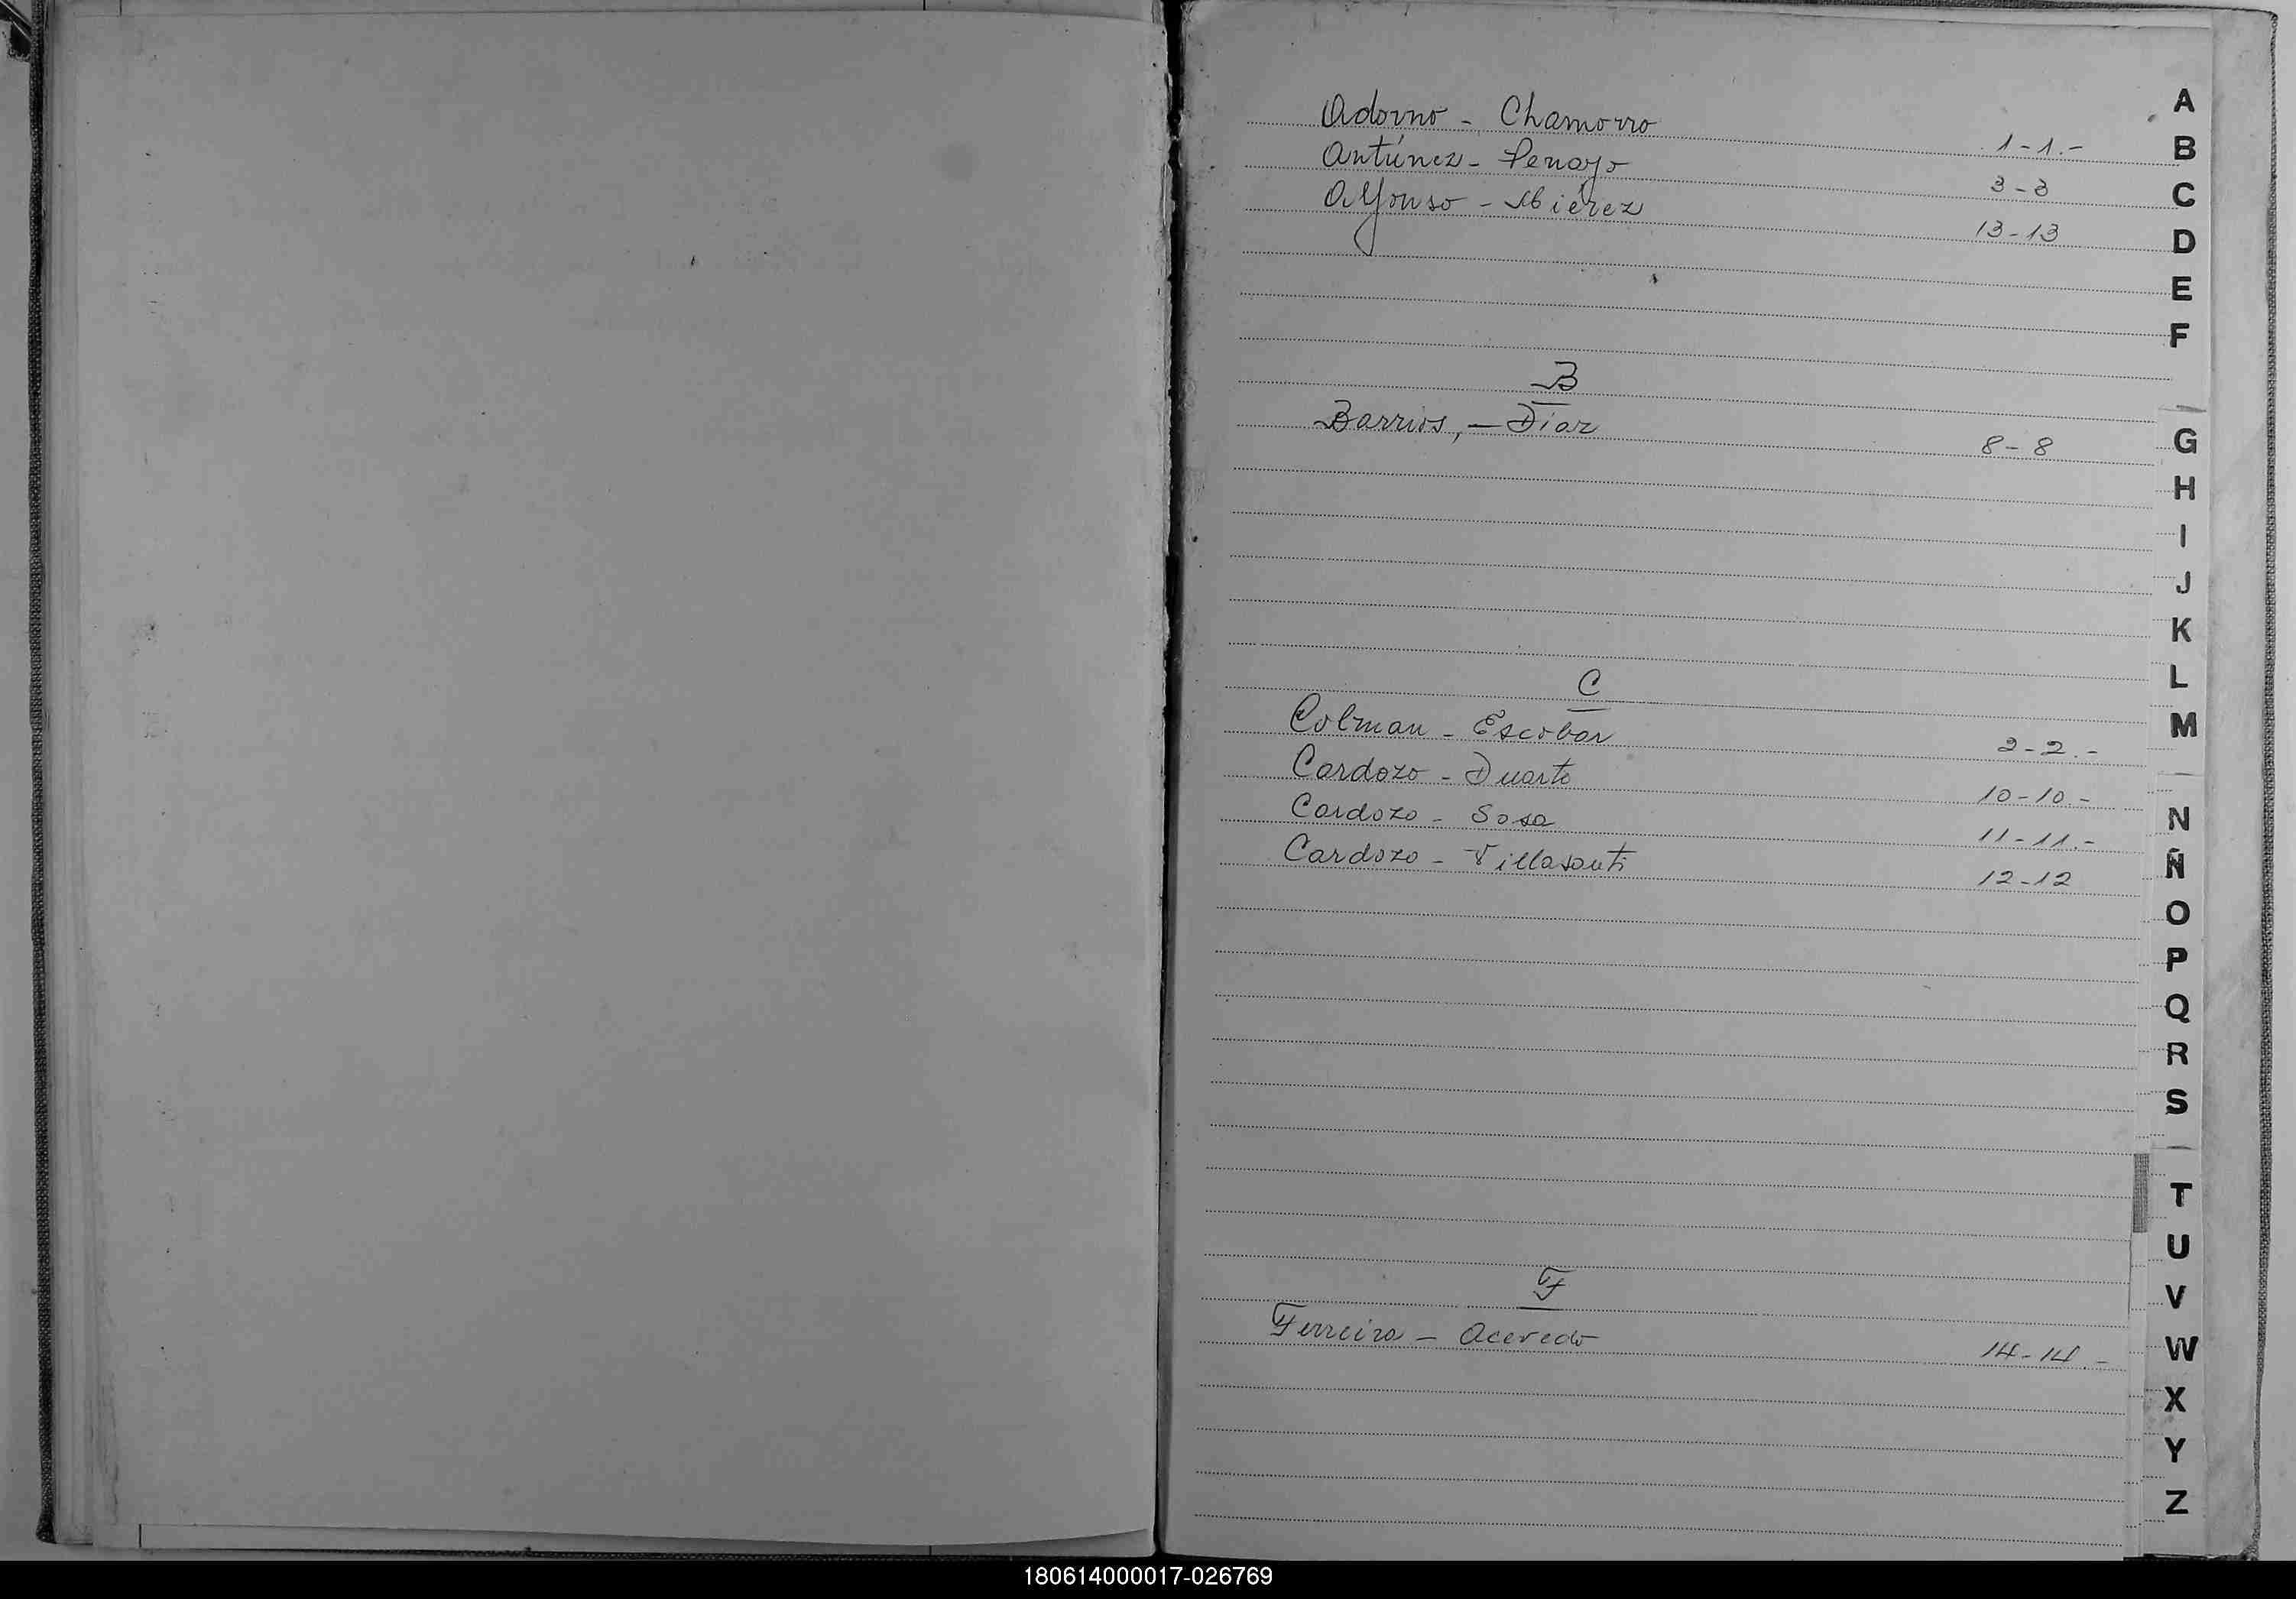 Adorno - Chamorro 1-1.-
Antúnez - Penayo 3-3
Alfonso - Miérez 13-13
B
Barrios, - Díaz 8-8
C
Colman - Escobar 2-2.-
Cardozo - Duarte 10-10.-
Cardozo - Sosa 11-11.-
Cardozo - Villasanti 12-12
F
Ferreira - Acevedo 14-14.-
A
B
C
D
E
F
G
H
I
J
K
L
M
N
Ñ
O
P
Q
R
S
T
U
V
W
X
Y
Z
180614000017-026769